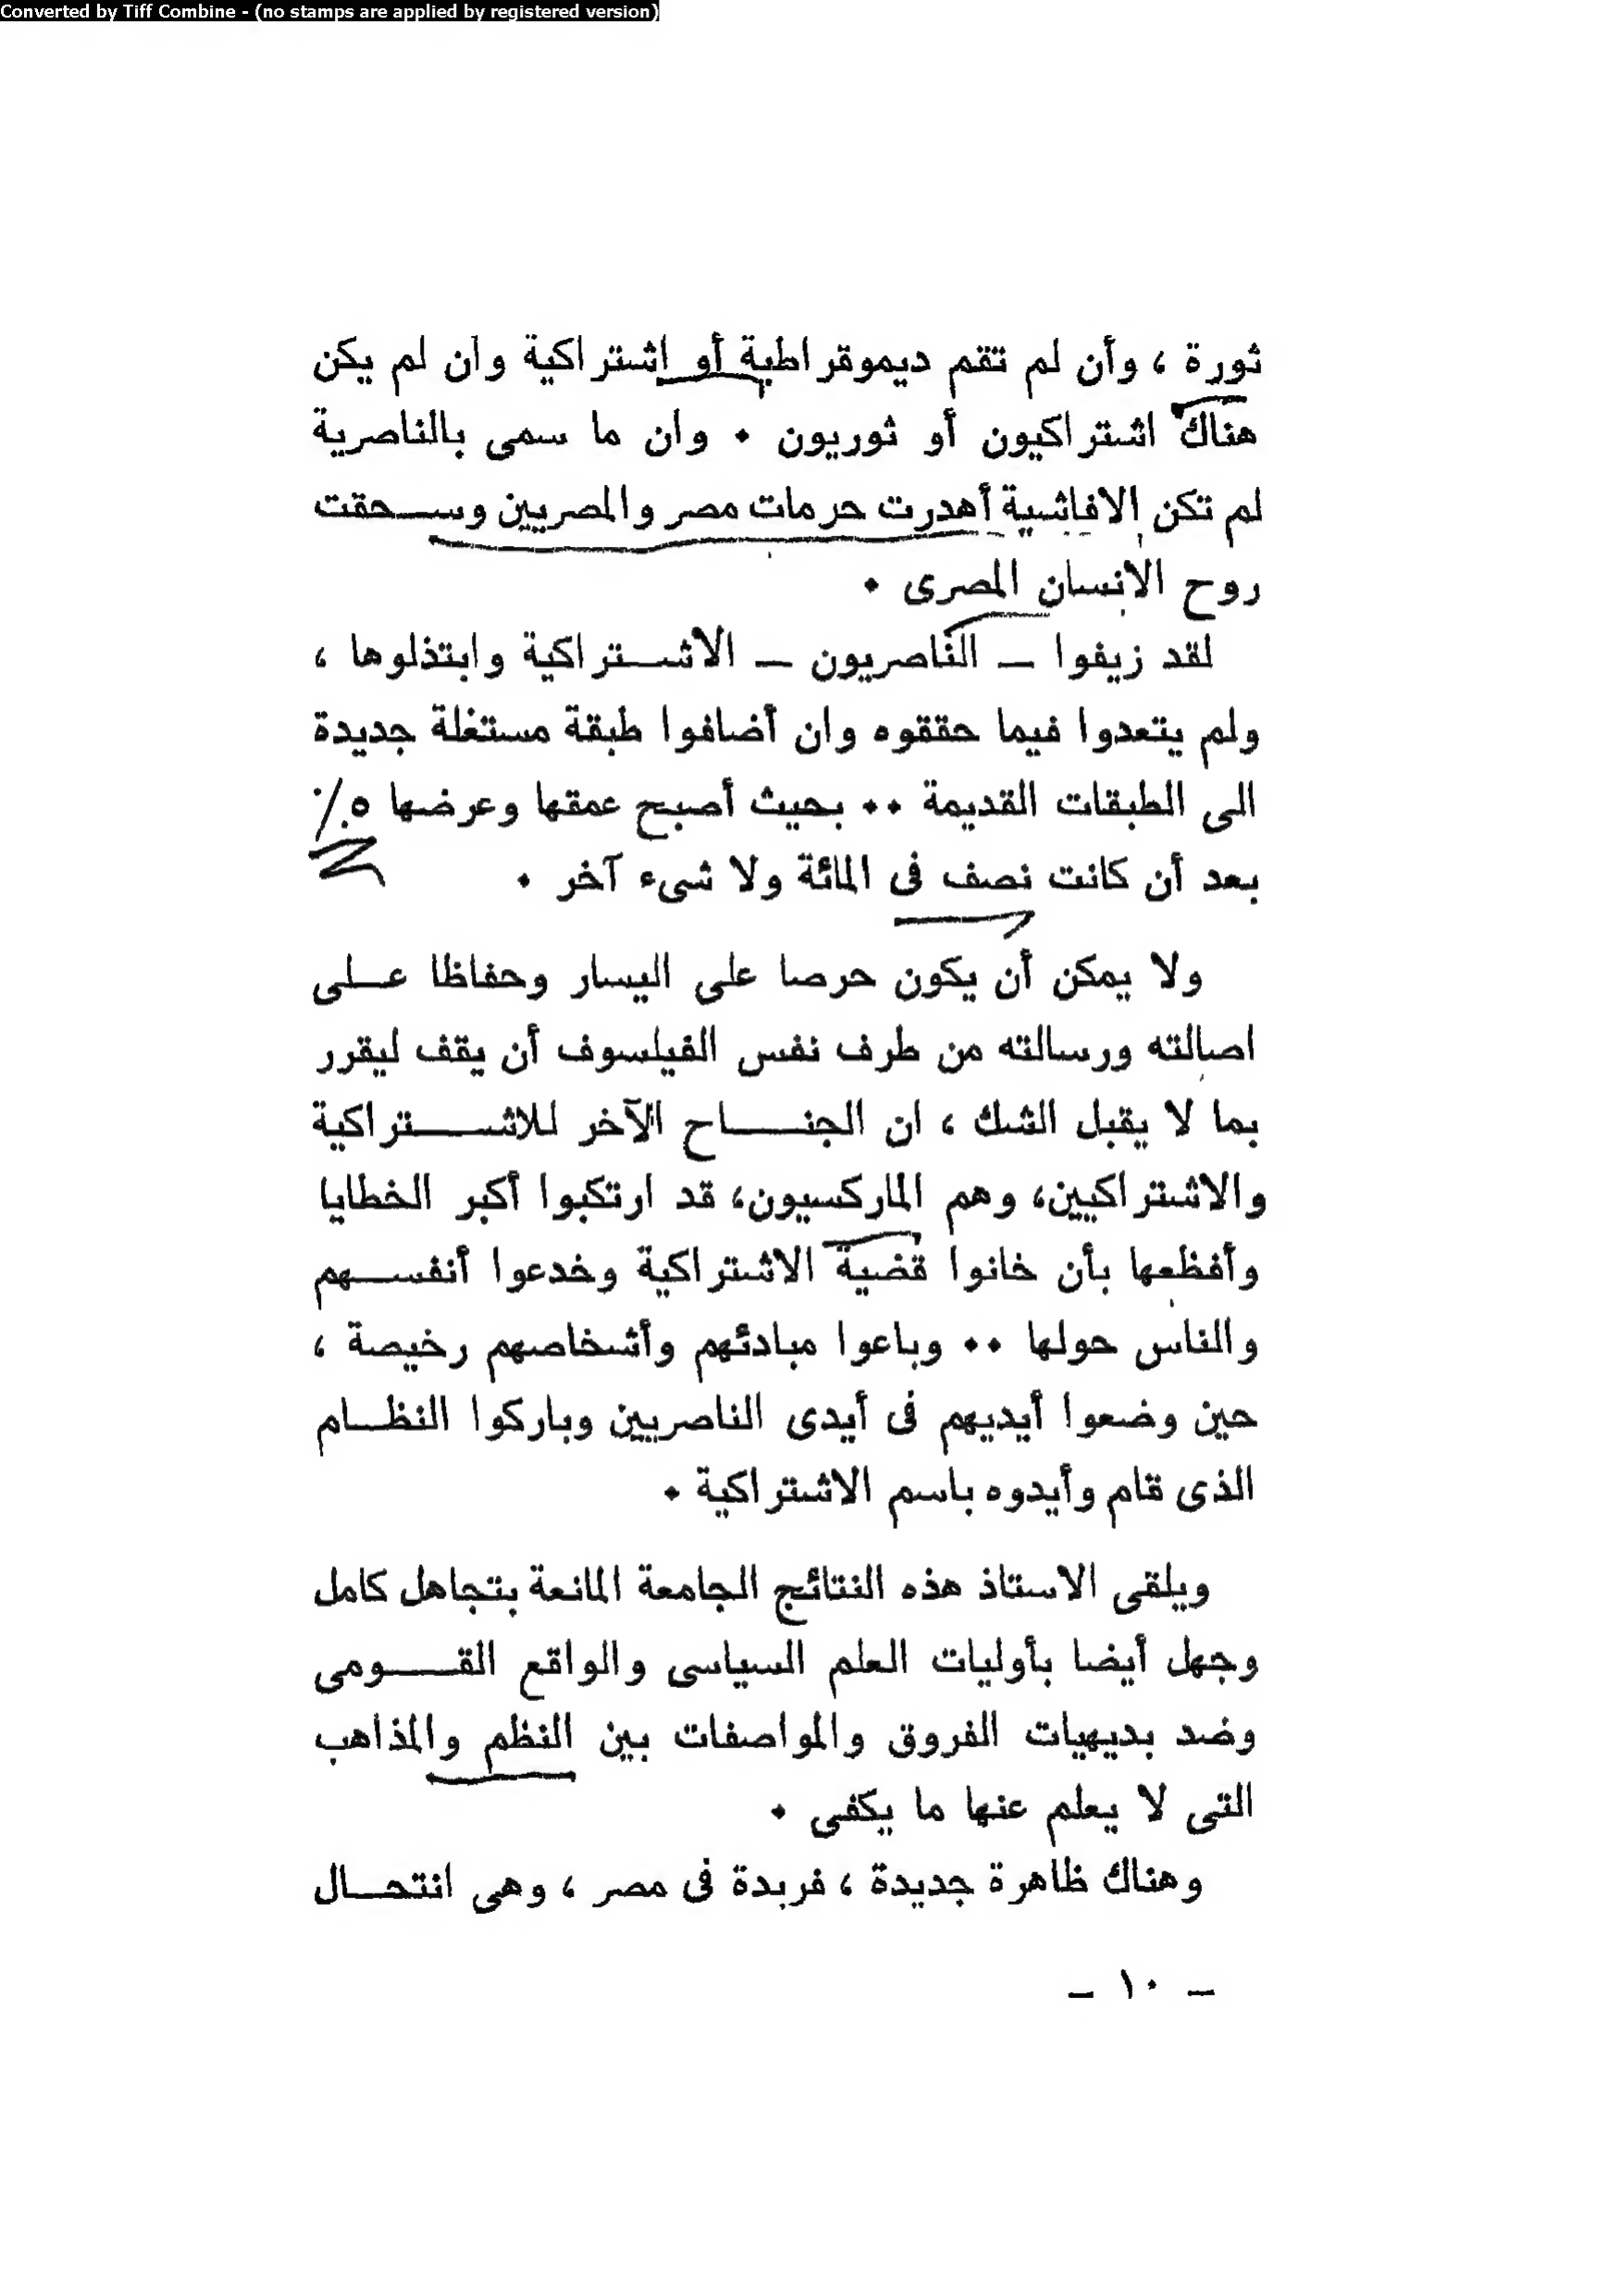 Converted by Tiff Combine - (no stamps are applied by registered version)
ثورة ، وأن لم تقم ديموقراطية أو اشتراكية وان لم يكن
هناك اشتراكيون أو ثوريون • وان ما سمى بالناصرية
لم تكن الافاشية أهدرت حرمات مصر والمصريين وسحقت
روح الانسان المصرى •
لقد زيفوا — الناصريون — الاشتراكية وابتذلوها ،
ولم يتعدوا فيما حققوه وان أضافوا طبقة مستغلة جديدة
الى الطبقات القديمة •• بحيث أصبح عمقها وعرضها ٥٪
بعد أن كانت نصف فى المائة ولا شىء آخر •
ولا يمكن أن يكون حرصا على اليسار وحفاظا على
اصالته ورسالته من طرف نفس الفيلسوف أن يقف ليقرر
بما لا يقبل الشك ، ان الجناح الآخر للاشتراكية
والاشتراكيين، وهم الماركسيون، قد ارتكبوا أكبر الخطايا
وأفظعها بأن خانوا قضية الاشتراكية وخدعوا أنفسهم
والناس حولها •• وباعوا مبادئهم وأشخاصهم رخيصة ،
حين وضعوا أيديهم فى أيدى الناصريين وباركوا النظام
الذى قام وأيدوه باسم الاشتراكية •
ويلقى الاستاذ هذه النتائج الجامعة المانعة بتجاهل كامل
وجهل أيضا بأوليات العلم السياسى والواقع القومى
وضد بديهيات الفروق والمواصفات بين النظم والمذاهب
التى لا يعلم عنها ما يكفى •
وهناك ظاهرة جديدة ، فريدة فى مصر ، وهى انتحال
— ١٠ —